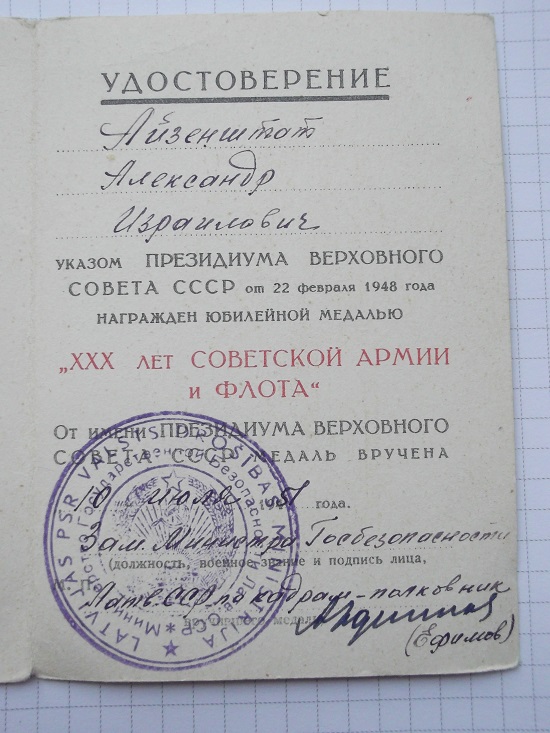 УДОСТОВЕРЕНИЕ
Айзенштат
Александр
Израилович
УКАЗОМ ПРЕЗИДИУМА ВЕРХОВНОГО
СОВЕТА СССР от 22 февраля 1948 года
НАГРАЖДЕН ЮБИЛЕЙНОЙ МЕДАЛЬЮ
„XXX ЛЕТ СОВЕТСКОЙ АРМИИ
И ФЛОТА“
От имени ПРЕЗИДИУМА ВЕРХОВНОГО
СОВЕТА СССР МЕДАЛЬ ВРУЧЕНА
10 июля 1951 года.
Зам. Министра Госбезопасности
(должность, военное звание и подпись лица,
Латв. ССР по кадрам - полковник
вручившего медаль)
(Ефимов)
LATVIJAS PSR VALSTS DROŠĪBAS MINISTRIJA
Министерство Государственной Безопасности Латв. ССР